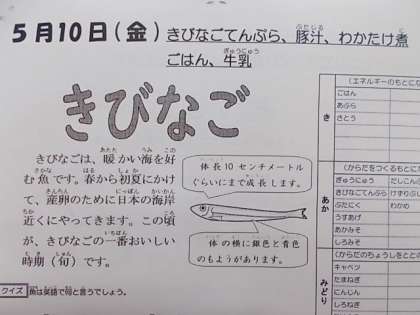 5月10日(金)きびなごてんぷら、豚汁、わかたけ煮
ごはん、牛乳
きびなご
きびなごは、暖かい海を好
む魚です。春から初夏にかけ
て、産卵のために日本の海岸
近くにやってきます。この頃
が、きびなごの一番おいしい
時期(旬)です。
体長10センチメートル
ぐらいにまで成長します。
体の横に銀色と青色
のもようがあります。
クイズ 魚は英語で何と言うでしょう。
(エネルギーのもとにな
き
ごはん
あぶら
さとう
(からだをつくるもとにな
あか
ぎゅうにゅう だしこん
きびなごてんぷら けずりぶし
ぶたにく わかめ
うすあげ
あかみそ
しろみそ
(からだのちょうしをととの
みどり
キャベツ
たまねぎ
にんじん
しろねぎ